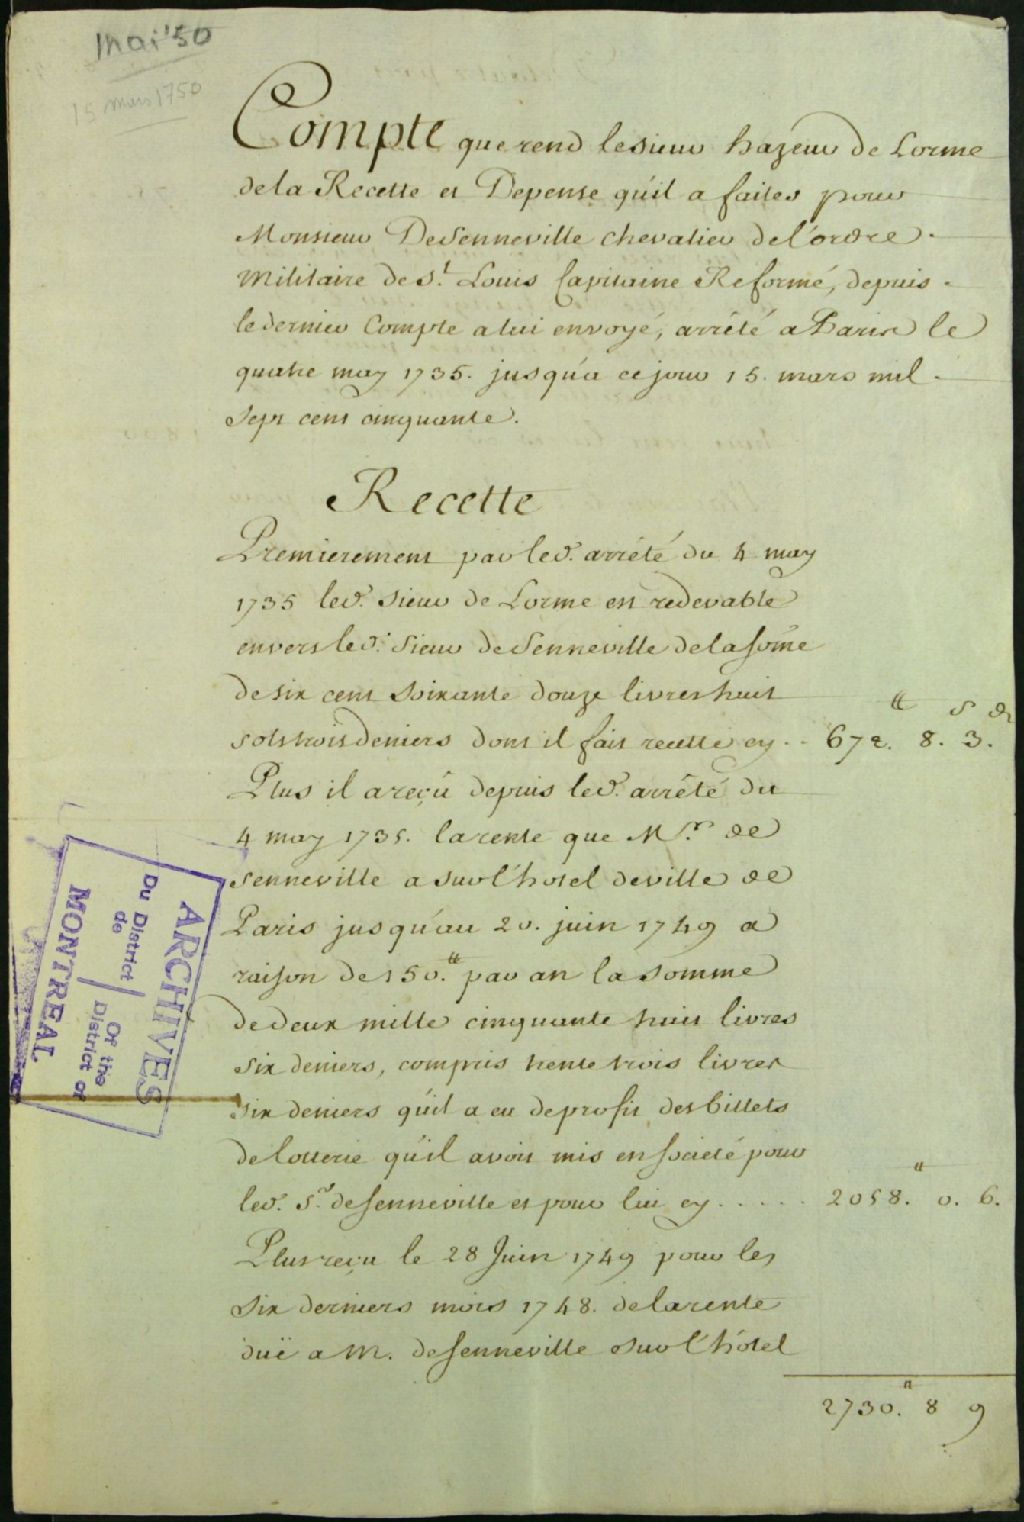 mai '50
15 mars 1750
Compte que rend le sieur hazeur de Lorme
de la Recette et Depense qu'il a faites pour
Monsieur De Senneville chevalier de l'ordre
Militaire de St. Louis Capitaine Reformé, depuis
le dernier Compte a lui envoyé, arrêté a Paris le
quatre may 1735. jusqu'a ce jour 15. mars mil
sept cent cinquante.
Recette
Premierement par led. arrêté du 4 may
1735 led. sieur de Lorme est redevable
envers led. sieur de Senneville de la some
de six cent soixante douze livres huit
sols trois deniers dont il fait recette cy .. 672.tt 8.s 3.d
Plus il a reçû depuis led. arrêté du
4 may 1735. la rente que Mr. de
Senneville a sur l'hotel de ville de
Paris jusqu'au 20. juin 1749 a
raison de 150.tt par an la somme
de deux mille cinquante huit livres
six deniers, compris trente trois livres
six deniers qu'il a eu de profit des billets
de lotterie qu'il avoit mis en societé pour
led. Sr. de Senneville et pour lui cy ..... 2058.tt 0. 6.
Plus reçu le 28 Juin 1749 pour les
six derniers mois 1748. de la rente
duë a M. de Senneville sur l'hôtel
2730.tt 8 9
ARCHIVES
Du District | Of the
de | District of
MONTREAL